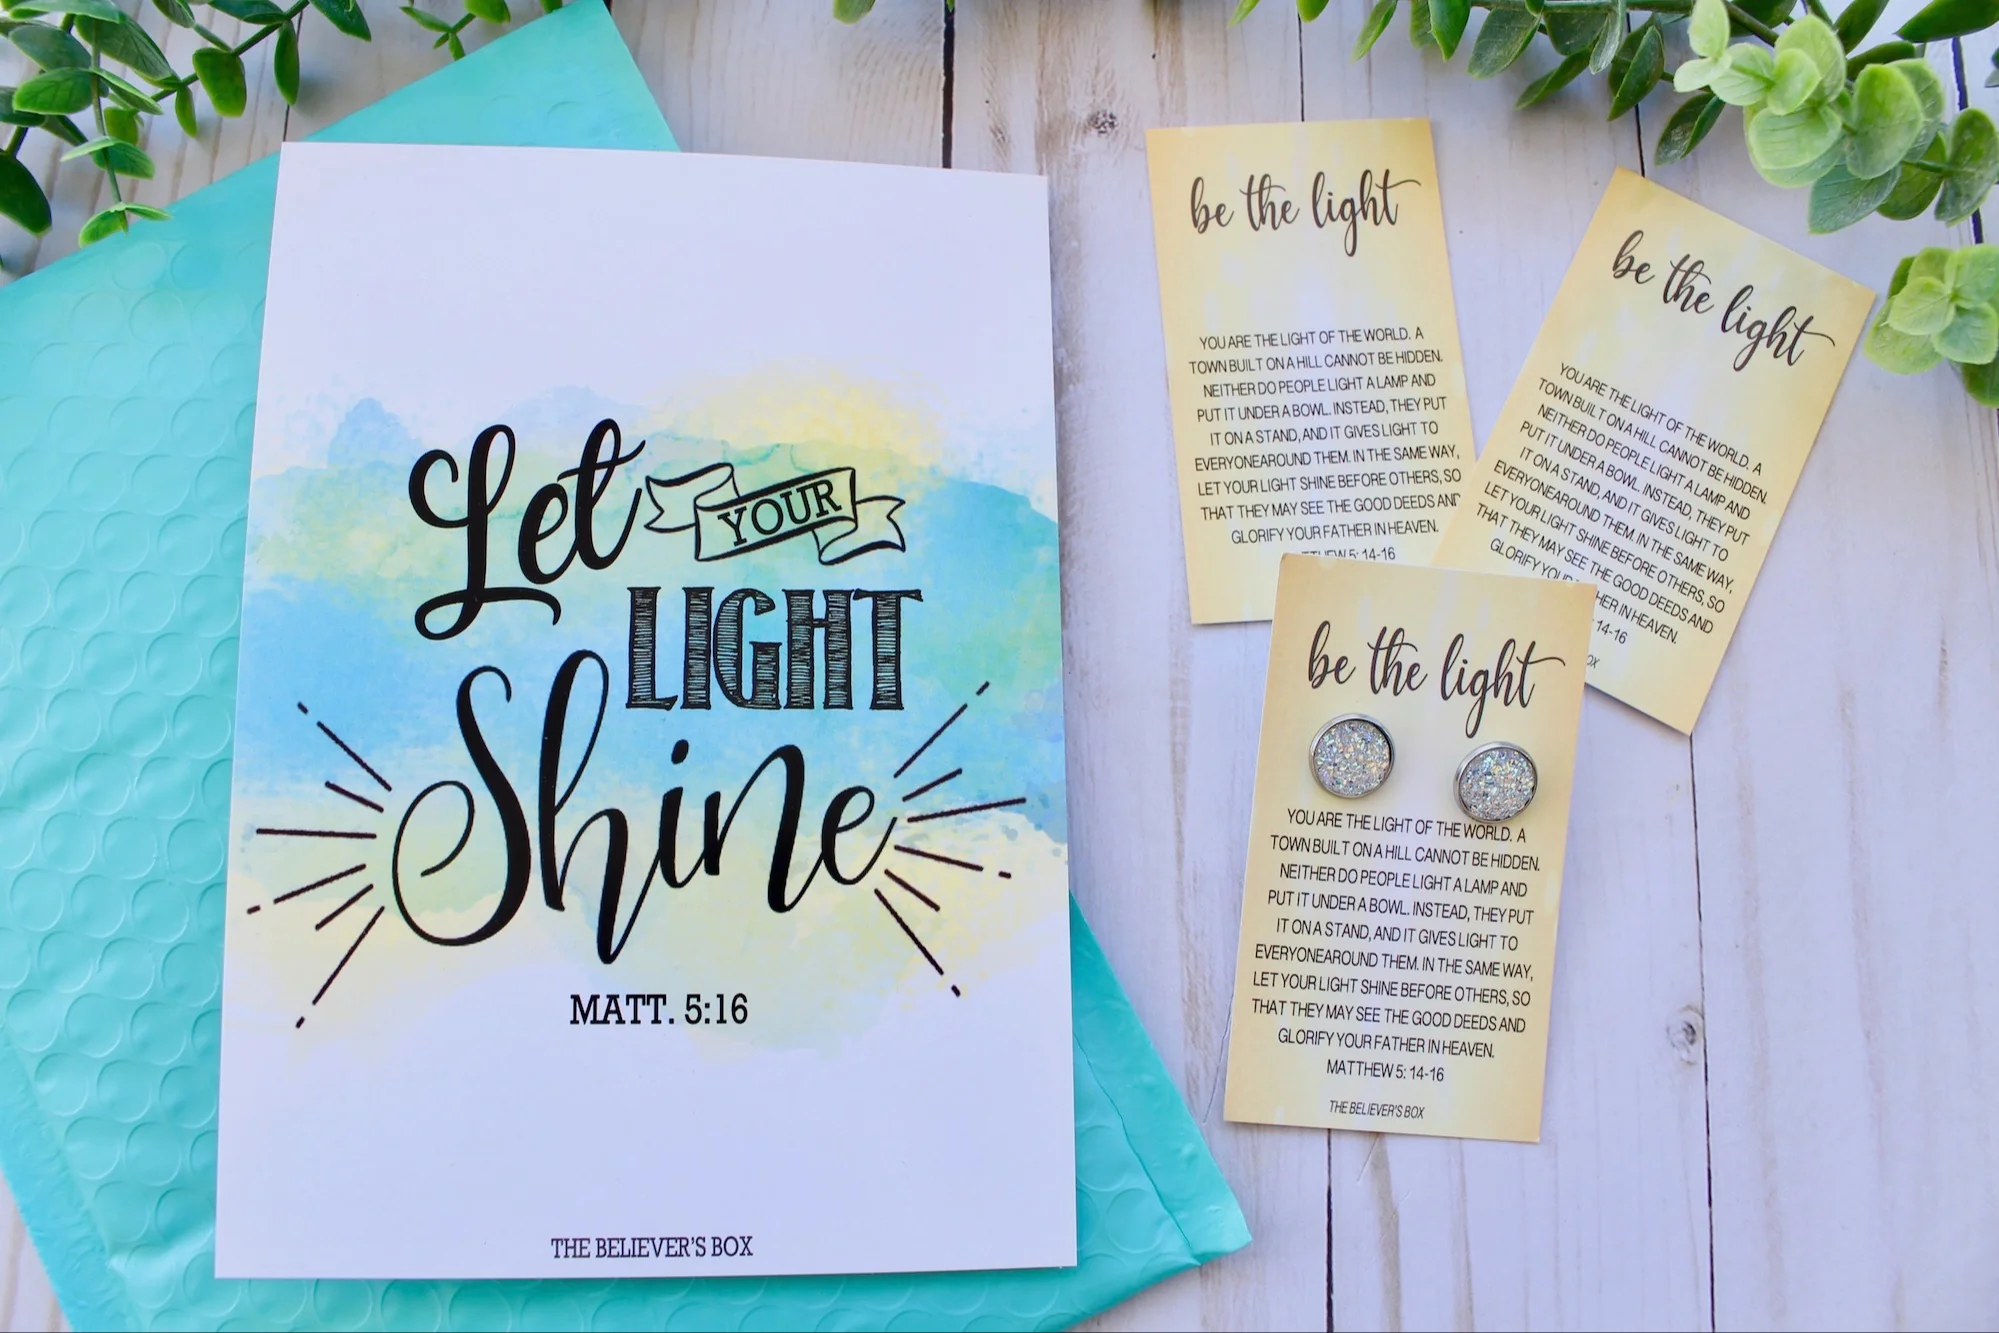 Let YOUR
LIGHT
Shine
MATT. 5:16
THE BELIEVER'S BOX
be the light
YOU ARE THE LIGHT OF THE WORLD. A
TOWN BUILT ON A HILL CANNOT BE HIDDEN.
NEITHER DO PEOPLE LIGHT A LAMP AND
PUT IT UNDER A BOWL. INSTEAD, THEY PUT
IT ON A STAND, AND IT GIVES LIGHT TO
EVERYONEAROUND THEM. IN THE SAME WAY,
LET YOUR LIGHT SHINE BEFORE OTHERS, SO
THAT THEY MAY SEE THE GOOD DEEDS AND
GLORIFY YOUR FATHER IN HEAVEN.
5: 14-16
be the light
YOU ARE THE LIGHT OF THE WORLD. A
TOWN BUILT ON A HILL CANNOT BE HIDDEN.
NEITHER DO PEOPLE LIGHT A LAMP AND
PUT IT UNDER A BOWL. INSTEAD, THEY PUT
IT ON A STAND, AND IT GIVES LIGHT TO
EVERYONEAROUND THEM. IN THE SAME WAY,
LET YOUR LIGHT SHINE BEFORE OTHERS, SO
THAT THEY MAY SEE THE GOOD DEEDS AND
GLORIFY YOUR HER IN HEAVEN.
14-16
OX
be the light
YOU ARE THE LIGHT OF THE WORLD. A
TOWN BUILT ON A HILL CANNOT BE HIDDEN.
NEITHER DO PEOPLE LIGHT A LAMP AND
PUT IT UNDER A BOWL. INSTEAD, THEY PUT
IT ON A STAND, AND IT GIVES LIGHT TO
EVERYONEAROUND THEM. IN THE SAME WAY,
LET YOUR LIGHT SHINE BEFORE OTHERS, SO
THAT THEY MAY SEE THE GOOD DEEDS AND
GLORIFY YOUR FATHER IN HEAVEN.
MATTHEW 5: 14-16
THE BELIEVER'S BOX